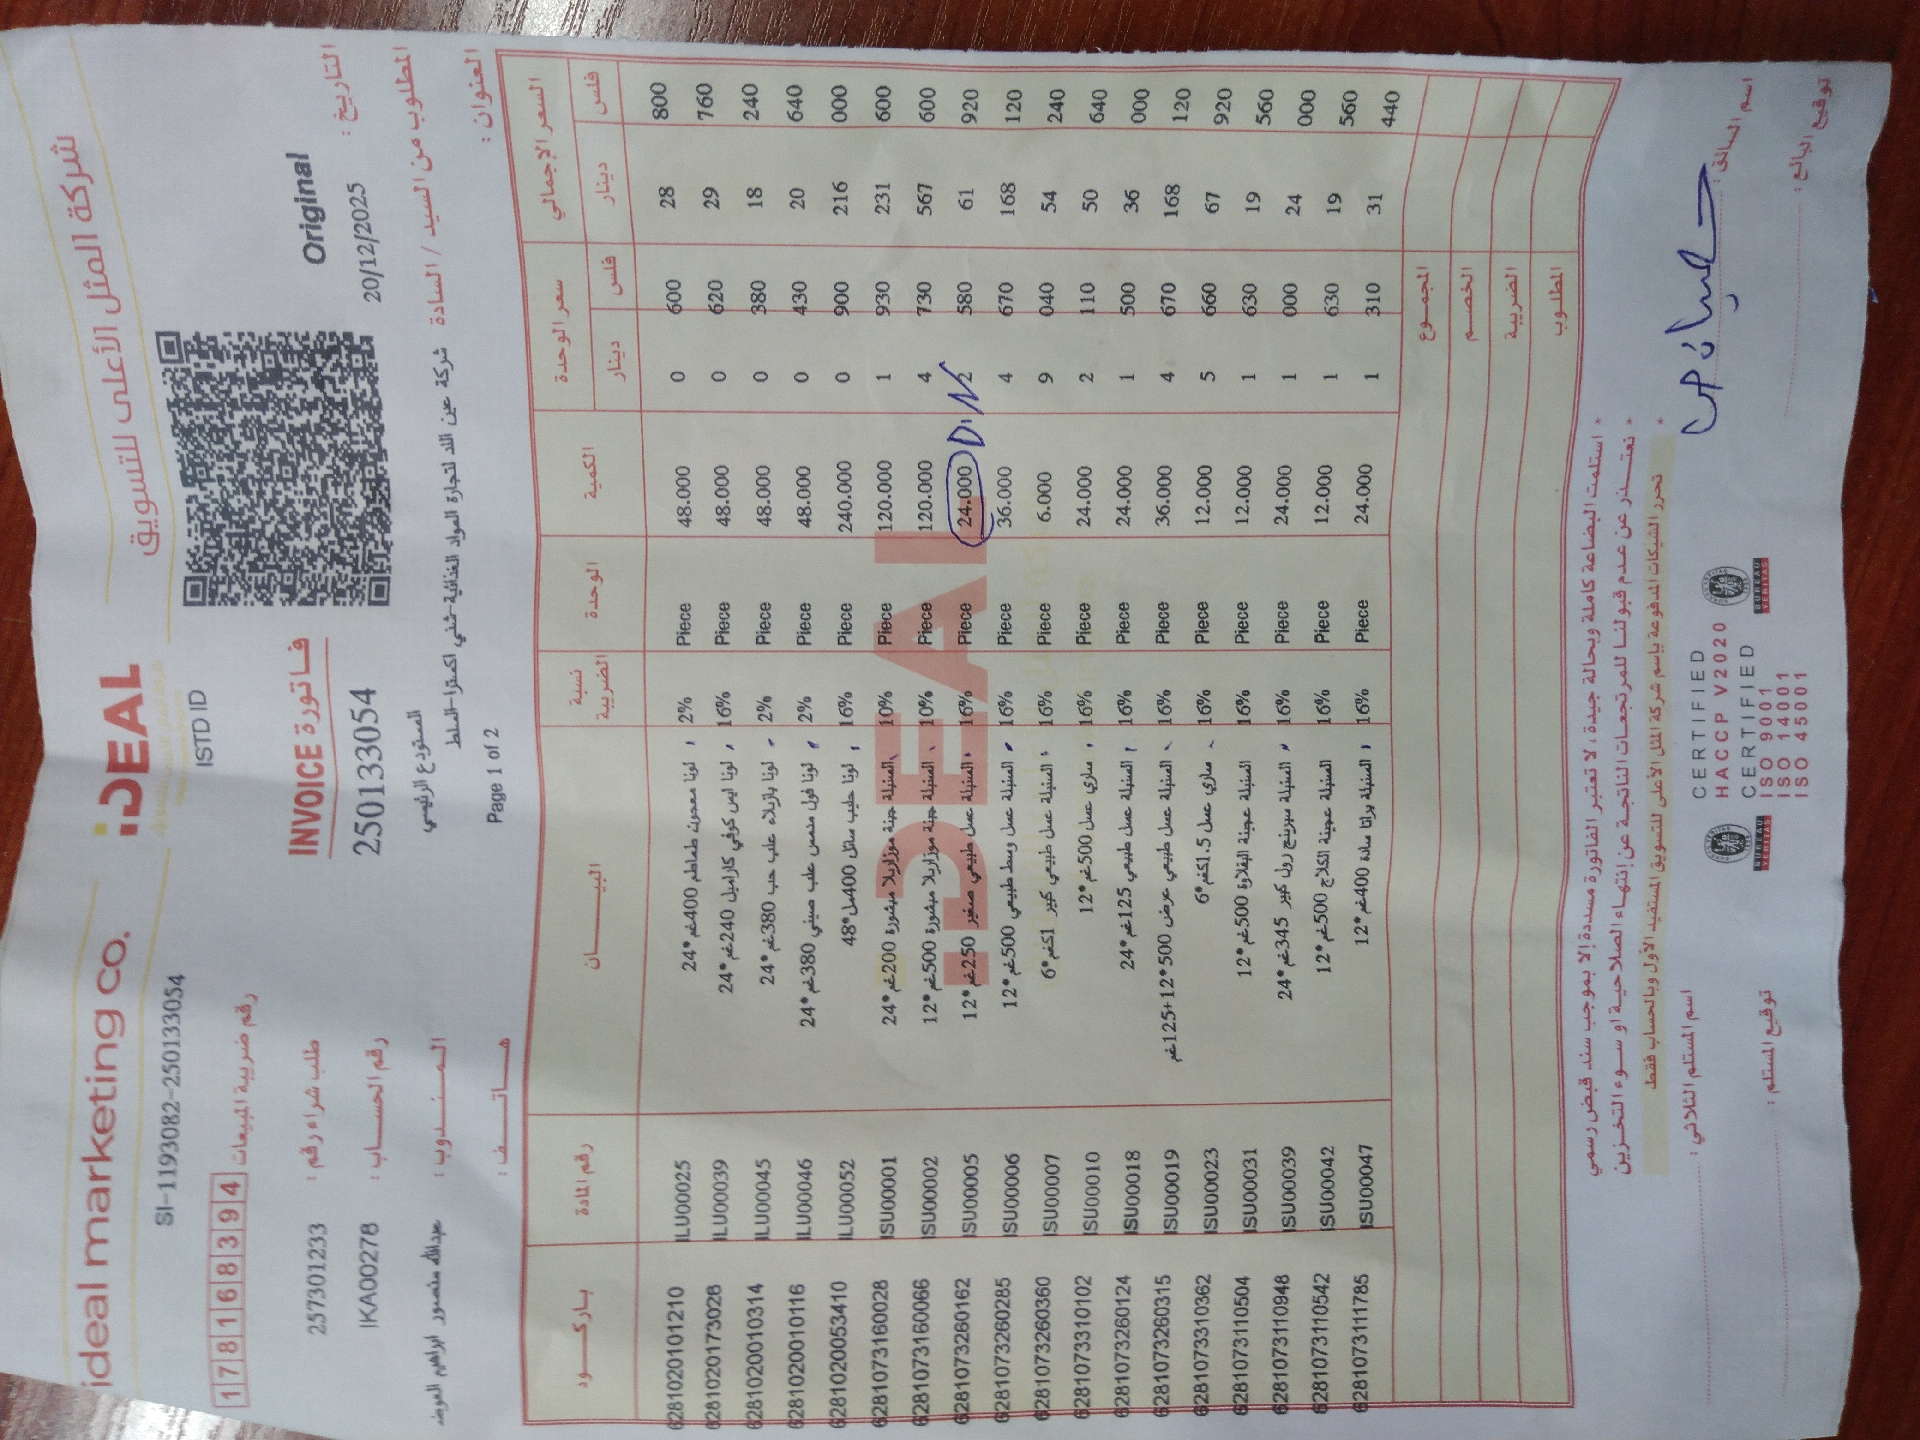 ideal marketing co.
iDEAL
شركة المثل الأعلى للتسويق
SI-1193082-250133054
ISTD ID
178168394 رقم ضريبة المبيعات
فاتورة INVOICE
Original
طلب شراء رقم : 257301233
250133054
التاريخ : 20/12/2025
رقم الحساب : IKA00278
المطلوب من السيد / السادة شركة عين اللد لتجارة المواد الغذائية-شني اكسترا-السلط
المـنـدوب : عبدالله منصور ابراهيم العوضه
المستودع الرئيسي
العنوان :
هاتف :
Page 1 of 2
باركود رقم المادة البيان نسبة الضريبة الوحدة الكمية سعر الوحدة السعر الإجمالي
دينار فلس دينار فلس
6281020101210 ILU00025 لونا معجون طماطم 400غم*24 2% Piece 48.000 0 600 28 800
6281020173028 ILU00039 لونا ايس كوفي كاراميل 240غم*24 16% Piece 48.000 0 620 29 760
6281020010314 ILU00045 لونا بازيلاء علب حب 380غم*24 2% Piece 48.000 0 380 18 240
6281020010116 ILU00046 لونا فول مدمس علب صيني 380غم*24 2% Piece 48.000 0 430 20 640
6281020053410 ILU00052 لونا حليب سائل 400مل*48 16% Piece 240.000 0 900 216 000
6281073160028 ISU00001 السنبلة جبنة موزاريلا مبشورة 200غم*24 10% Piece 120.000 1 930 231 600
6281073160066 ISU00002 السنبلة جبنة موزاريلا مبشورة 500غم*12 10% Piece 120.000 4 730 567 600
6281073260162 ISU00005 السنبلة عسل طبيعي صغير 250غم*12 16% Piece 24.000 2 580 61 920
6281073260285 ISU00006 السنبلة عسل وسط طبيعي 500غم*12 16% Piece 36.000 4 670 168 120
6281073260360 ISU00007 السنبلة عسل طبيعي كبير 1كغم*6 16% Piece 6.000 9 040 54 240
6281073310102 ISU00010 ساري عسل 500غم*12 16% Piece 24.000 2 110 50 640
6281073260124 ISU00018 السنبلة عسل طبيعي 125غم*24 16% Piece 24.000 1 500 36 000
6281073260315 ISU00019 السنبلة عسل طبيعي عرض 500*12+125غم 16% Piece 36.000 4 670 168 120
6281073310362 ISU00023 ساري عسل 1.5كغم*6 16% Piece 12.000 5 660 67 920
6281073110504 ISU00031 السنبلة عجينة البقلاوة 500غم*12 16% Piece 12.000 1 630 19 560
6281073110948 ISU00039 السنبلة سبرينج رول كبير 345غم*24 16% Piece 24.000 1 000 24 000
6281073110542 ISU00042 السنبلة عجينة الكلاج 500غم*12 16% Piece 12.000 1 630 19 560
6281073111785 ISU00047 السنبلة براتا سادة 400غم*12 16% Piece 24.000 1 310 31 440
iDEAL
المجموع
الخصم
الضريبة
المطلوب
* استلمت البضاعة كاملة وبحالة جيدة، لا تعتبر الفاتورة مسددة إلا بموجب سند قبض رسمي
* نعتذر عن عدم قبولنا للمرتجعات الناتجة عن إنتهاء الصلاحية او سوء التخزين
* تحرر الشيكات المدفوعة بإسم شركة المثل الأعلى للتسويق المستفيد الأول وبالحساب فقط
اسم المستلم الثلاثي :
CERTIFIED
HACCP V2020
CERTIFIED
ISO 9001
ISO 14001
ISO 45001
BUREAU VERITAS
BUREAU VERITAS
اسم السائق :
توقيع المستلم :
توقيع البائع :